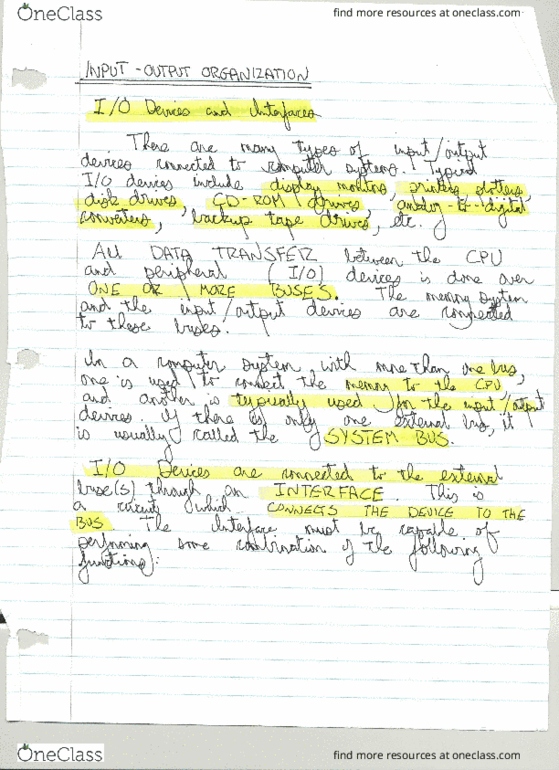 OneClass
find more resources at oneclass.com
INPUT-OUTPUT ORGANIZATION
I/O Devices and Interfaces
There are many types of input/output
devices connected to computer systems. Typical
I/O devices include display monitors, printers, plotters,
disk drives, CD-ROM drives, analog-to-digital
converters, backup tape drives, etc.
ALL DATA TRANSFER between the CPU
and peripheral (I/O) devices is done over
ONE OR MORE BUSES. The memory system
and the input/output devices are connected
to these buses.
In a computer system with more than one bus,
one is used to connect the memory to the CPU,
and another is typically used for the input/output
devices. If there is only one external bus, it
is usually called the SYSTEM BUS.
I/O Devices are connected to the external
buse(s) through an INTERFACE. This is
a circuit which CONNECTS THE DEVICE TO THE
BUS. The Interface must be capable of
performing some combination of the following
functions:
OneClass
find more resources at oneclass.com